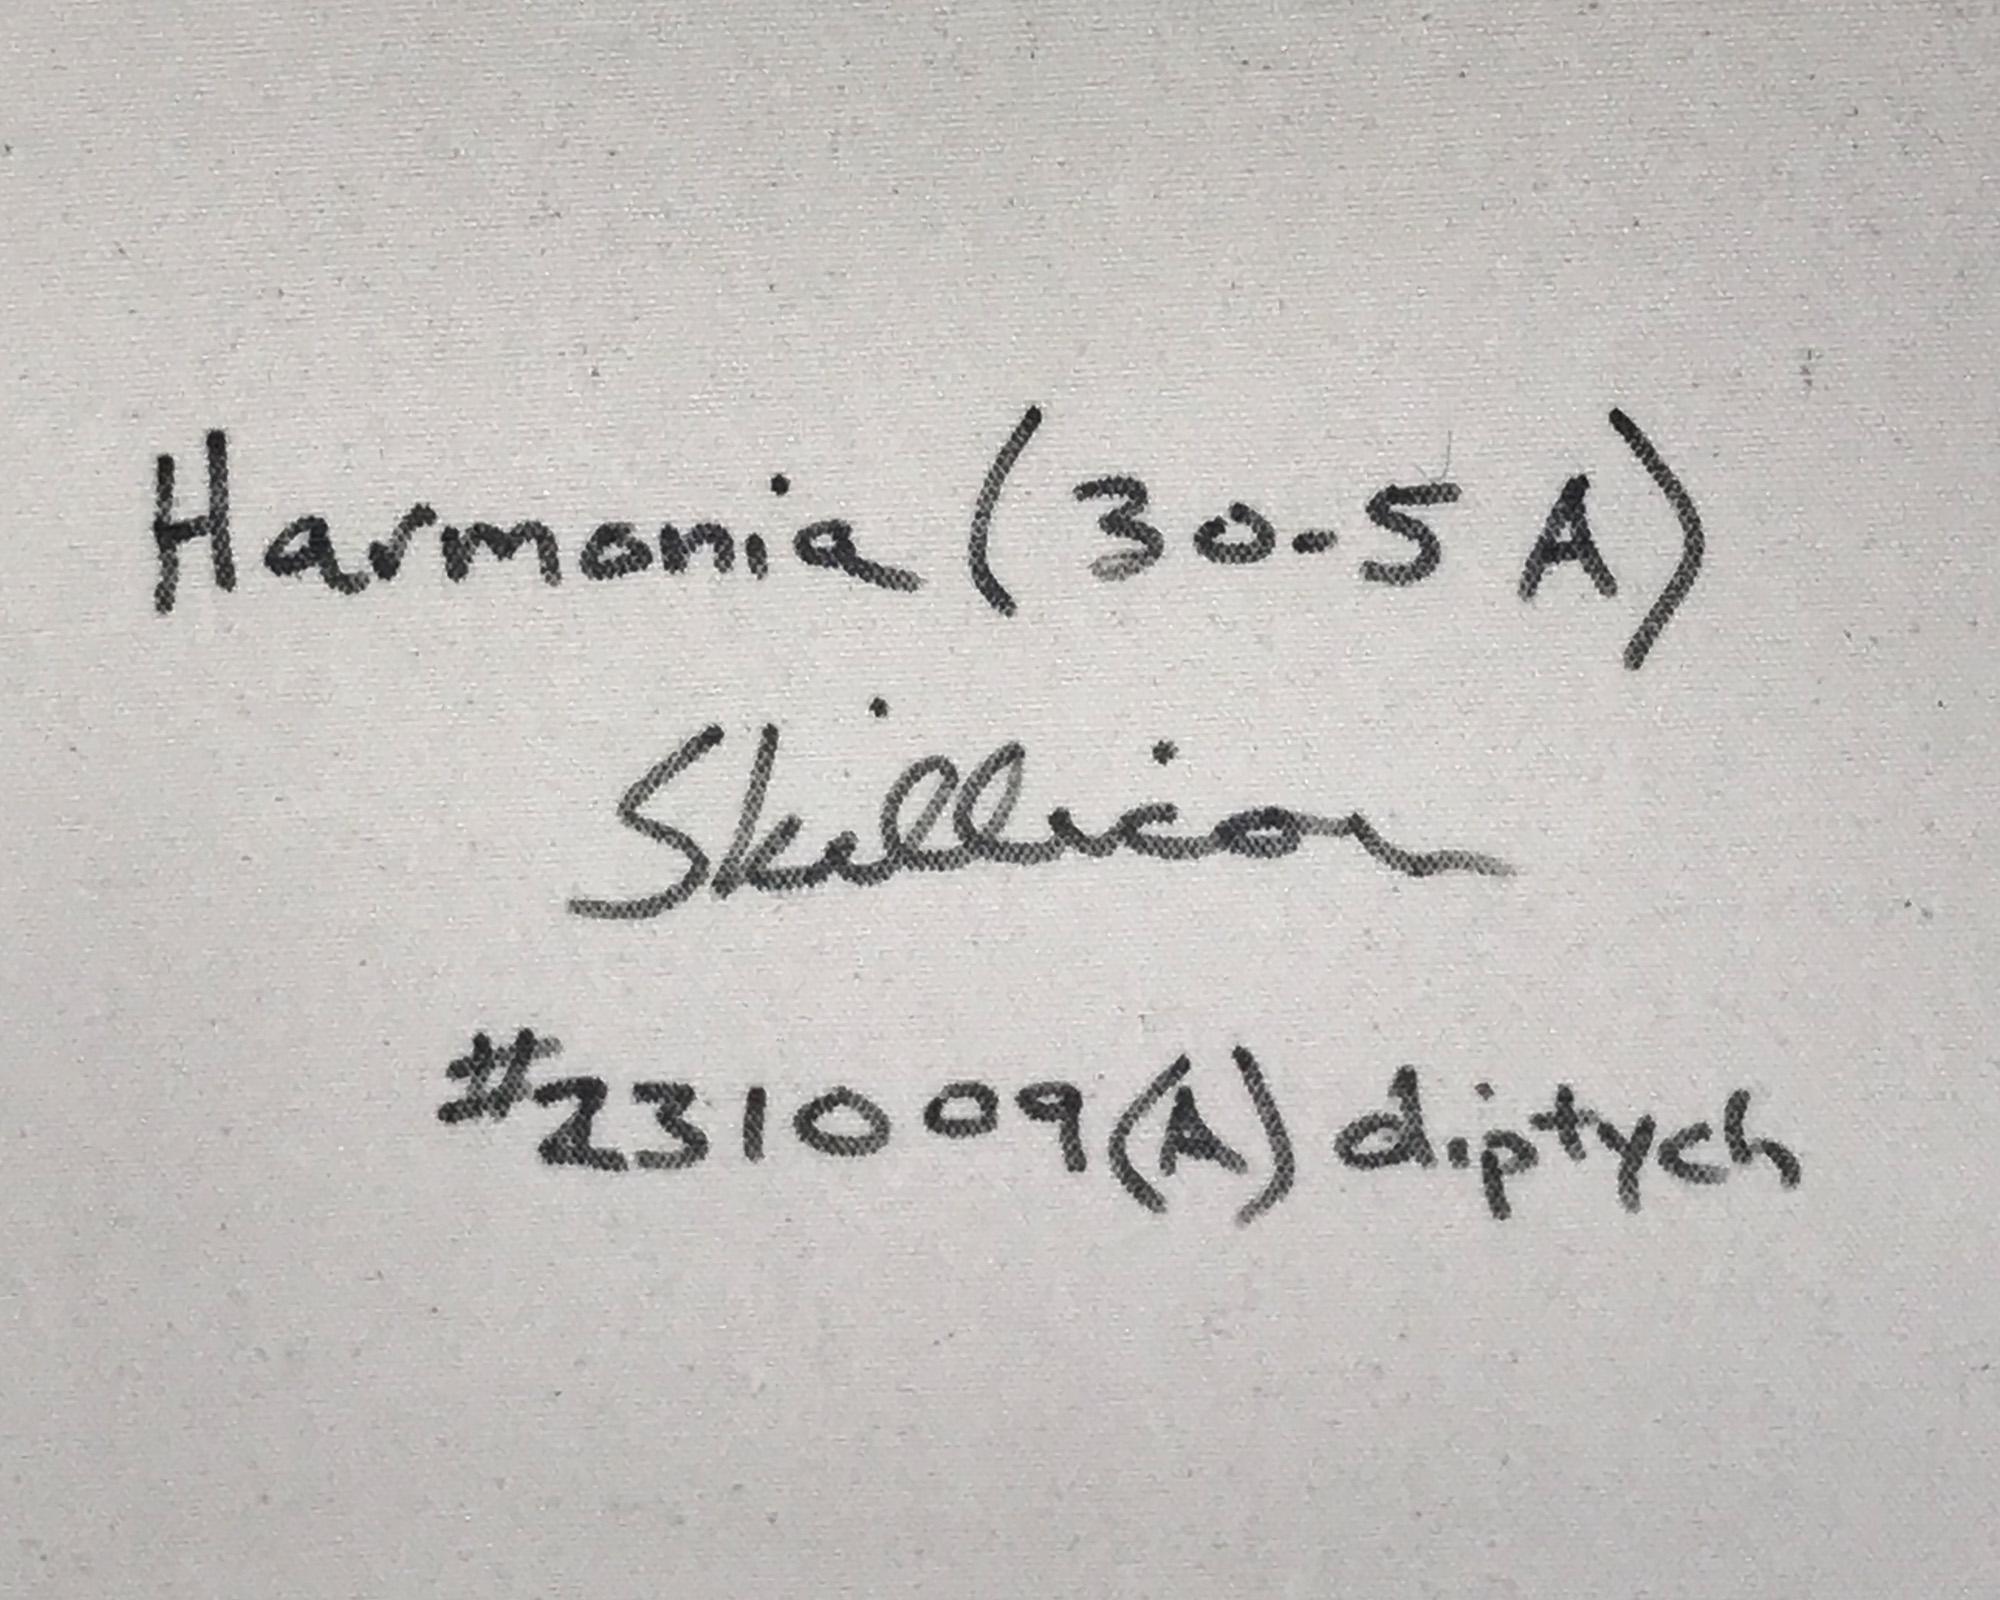 Harmonia (30-5A)
Skillicorn
#231009(A) diptych